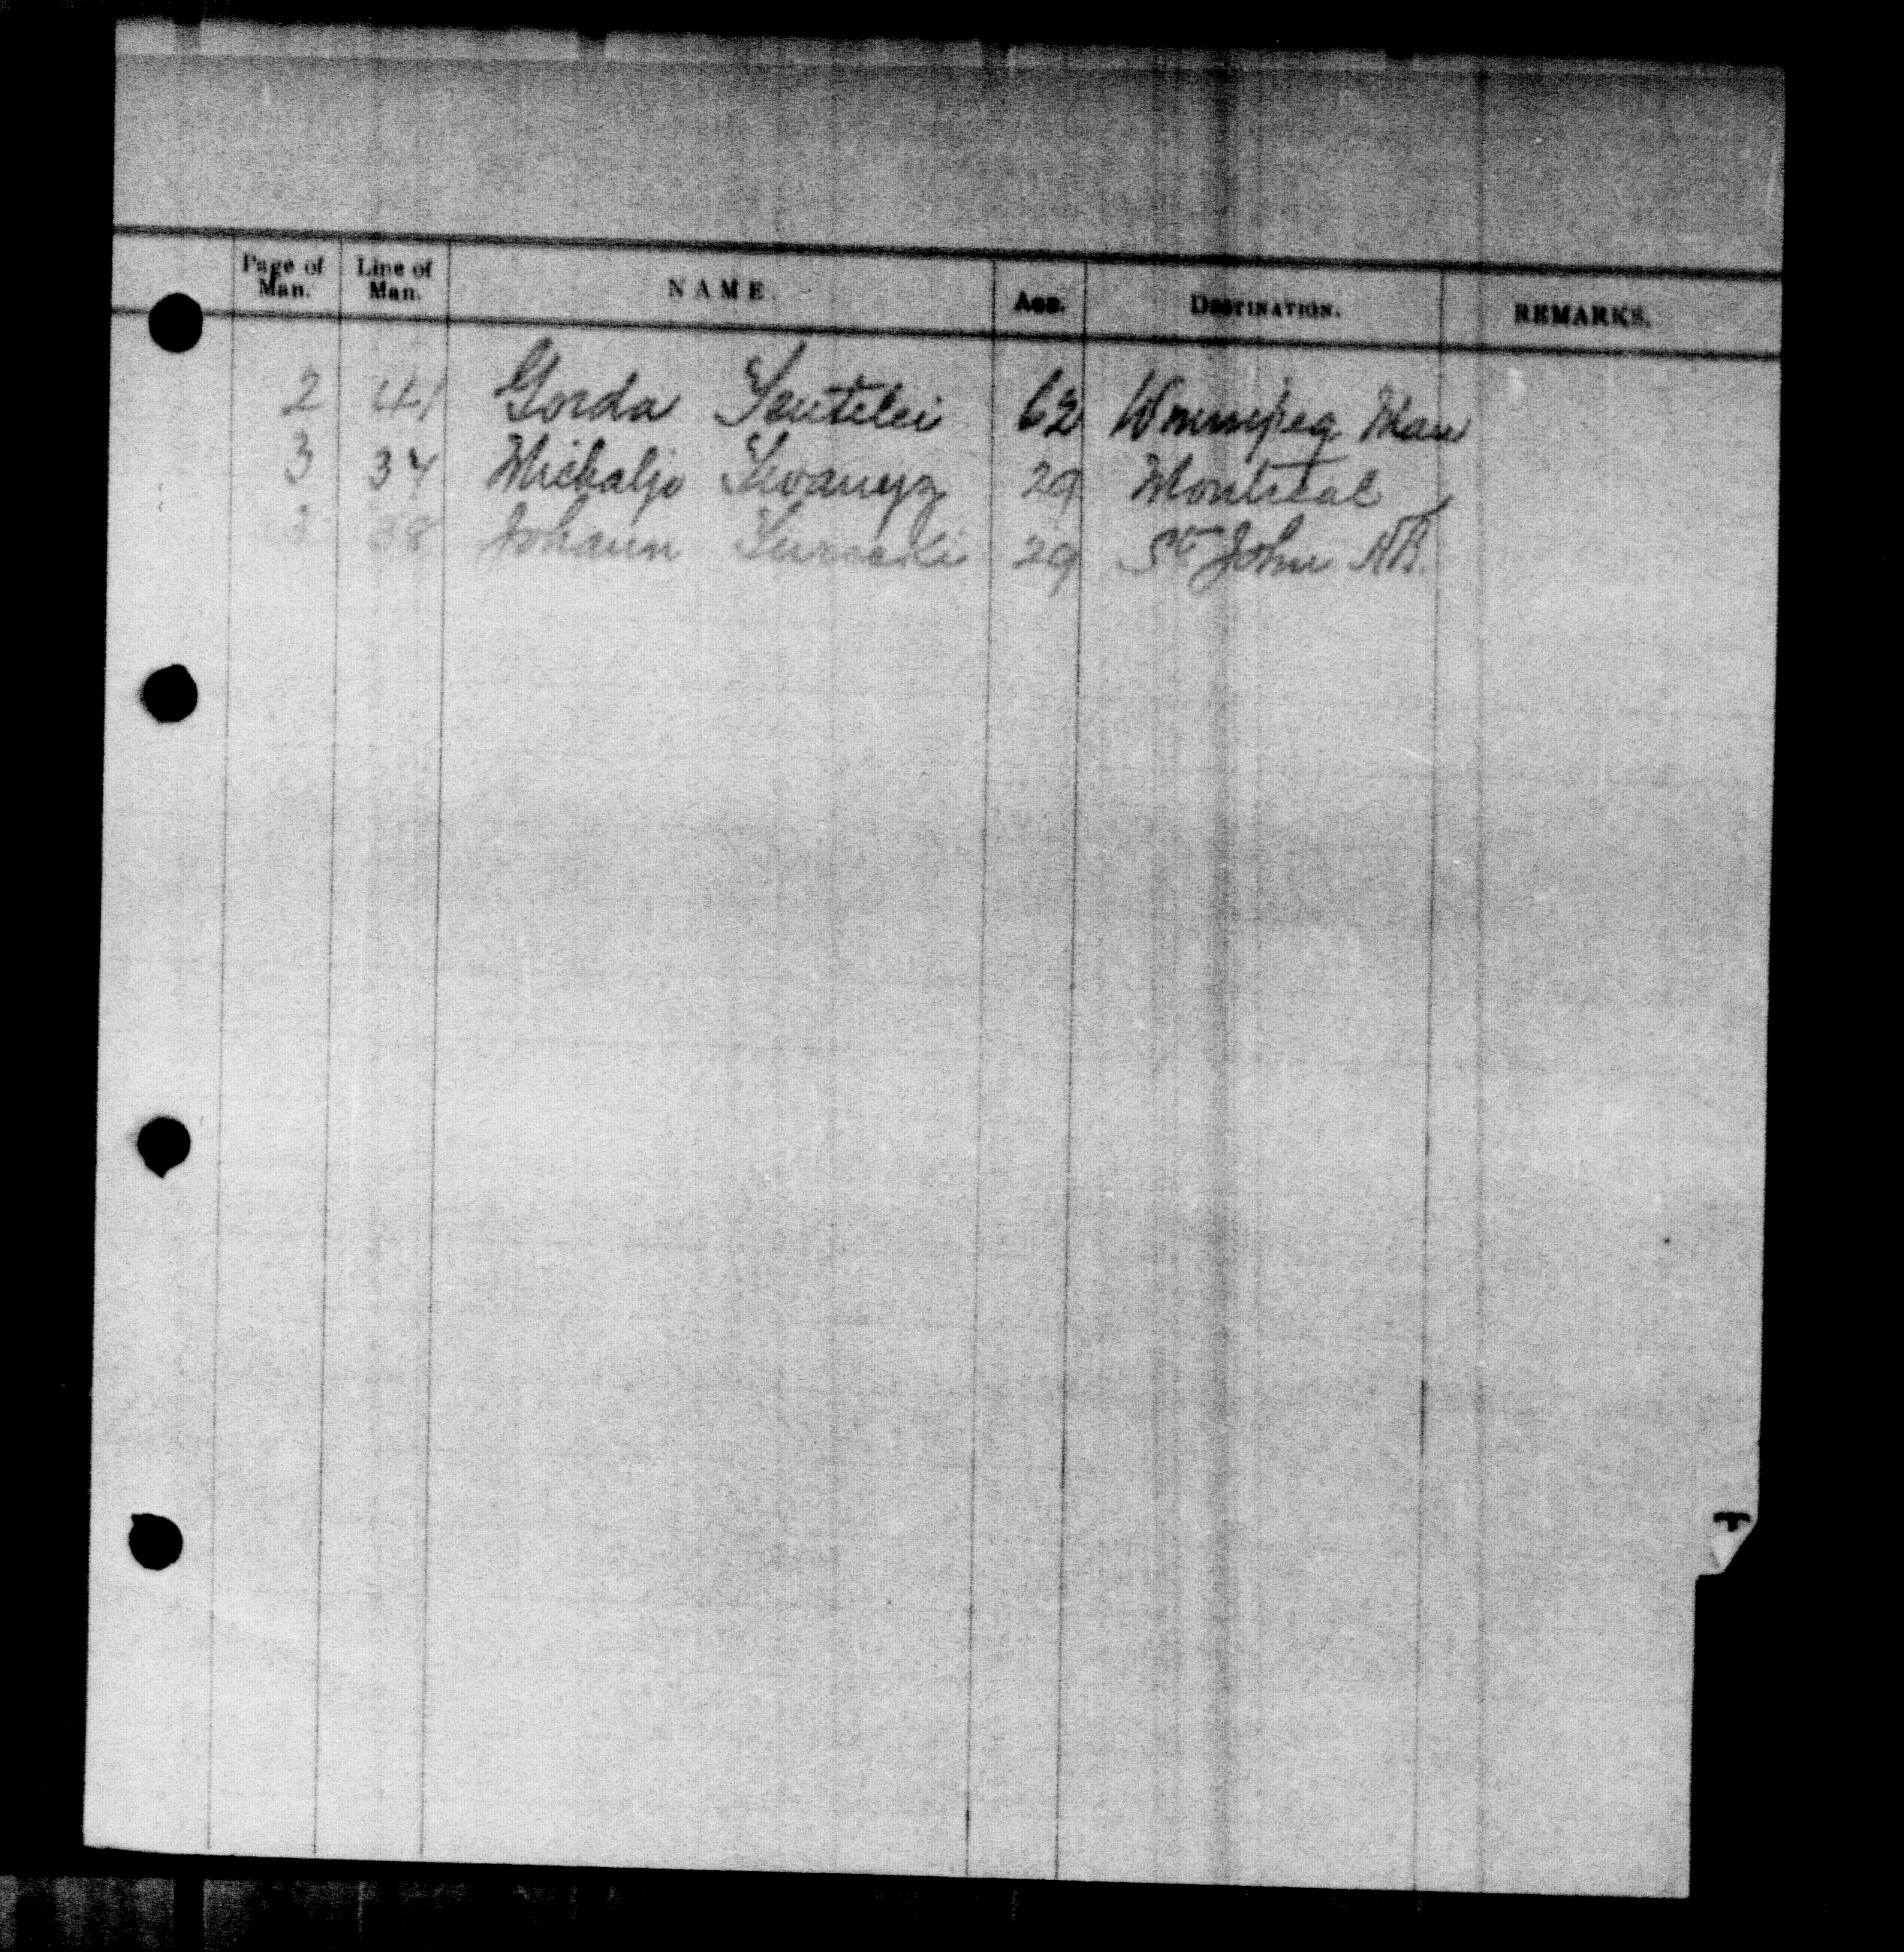 Page of Man. Line of Man. NAME. AGE. DESTINATION. REMARKS.
2 41 Gorda 62 Winnipeg Man
3 34 Michaljo Iwanyz 29 Montreal
3 38 Johann 29 St John NB.
T